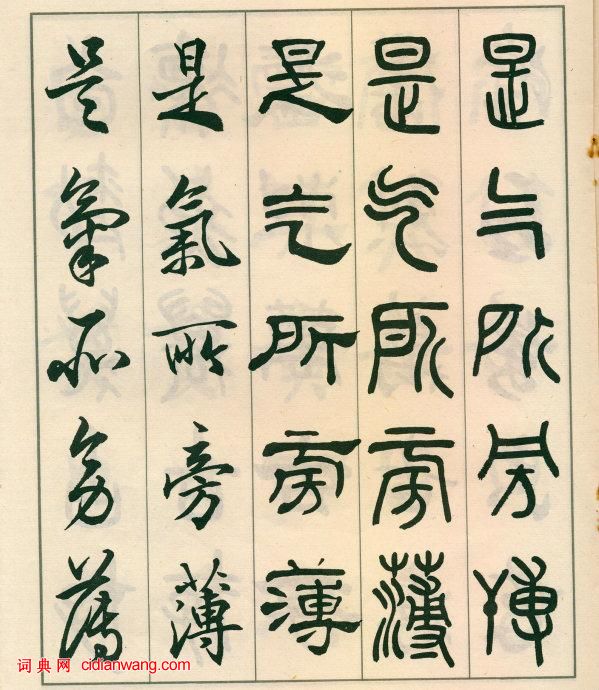 是气所旁
是气所旁薄
是气所旁薄
是氣所旁薄
是氣所旁薄
词典网 cidianwang.com